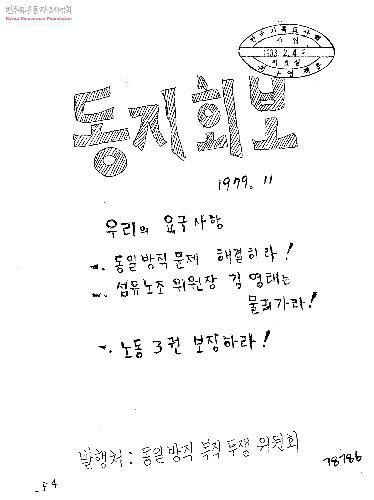 민주화운동기념사업회
Korea Democracy Foundation
동지회보
1979. 11
우리의 요구사항
-. 동일방직 문제 해결하라!
-. 섬유노조 위원장 김영태는
물러가라!
-. 노동 3권 보장하라!
발행처 : 동일방직 복직 투쟁 위원회
78786